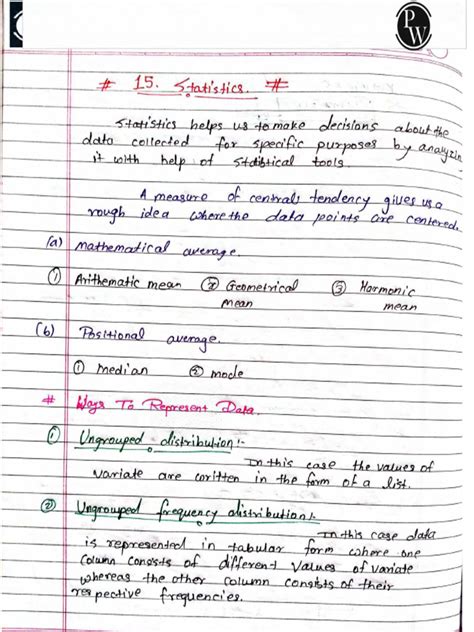 P
W
# 15. Statistics. #
Statistics helps us to make decisions about the
data collected for specific purposes by analyzin
it with help of statistical tools
A measure of centrals tendency gives us a
rough idea where the data points are centered.
(a) mathematical average.
① Arithematic mean ② Geometrical ③ Harmonic
mean mean
(b) Positional average.
① median ② mode
# Ways To Represent Data.
① Ungrouped distribution :-
In this case the values of
variate are written in the form of a list.
② Ungrouped frequency distribution :-
In this case data
is represented in tabular form where one
column consists of different values of variate
whereas the other column consists of their
respective frequencies.